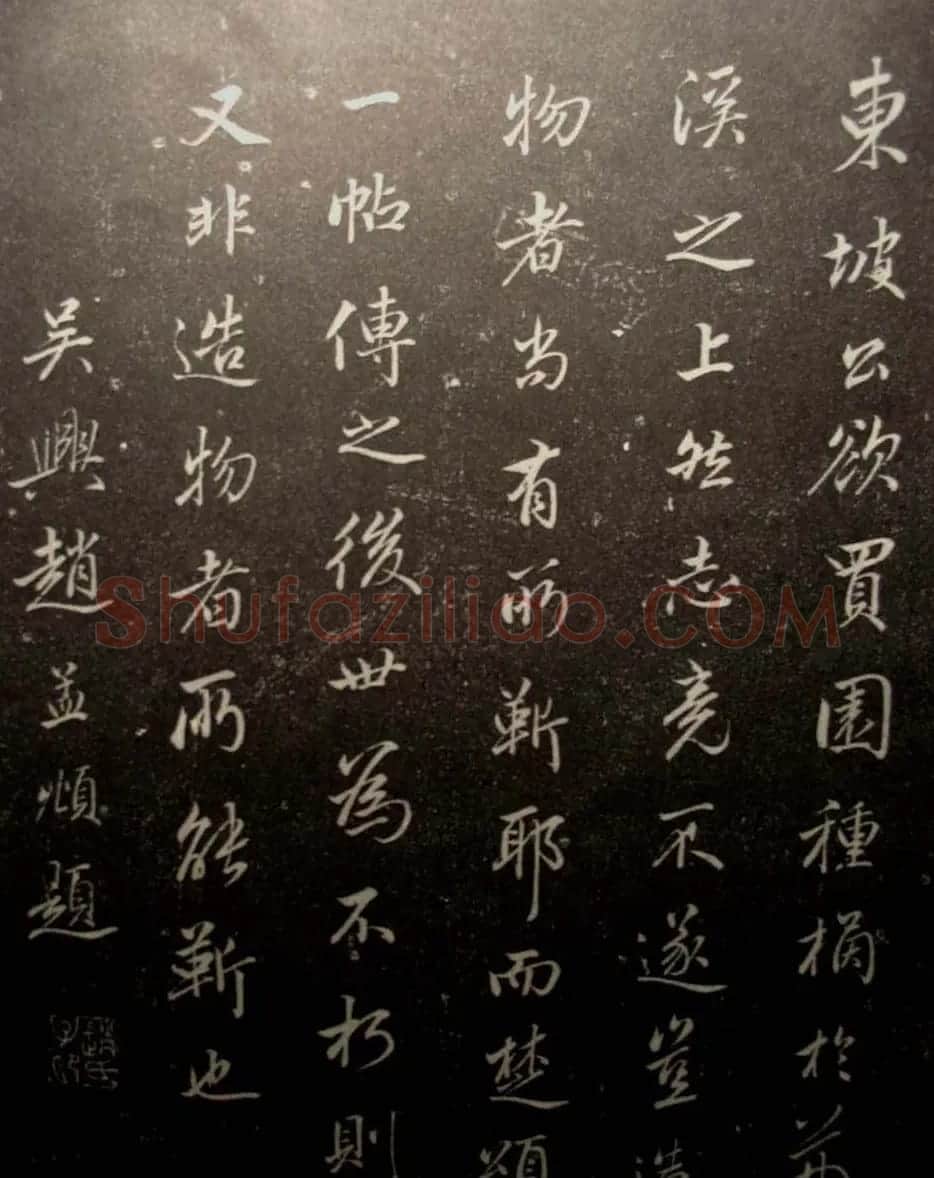 東坡公欲買園種橘於荊
溪之上然志竟不遂豈造
物者尚有所靳耶而楚頌
一帖傳之後世為不朽則
又非造物者所能靳也
吳興趙孟頫題
趙氏子昂
Shufaziliao.COM